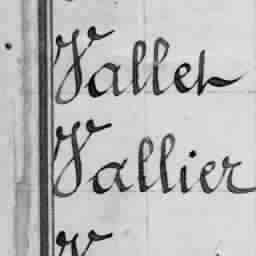 Vallet
Vallier